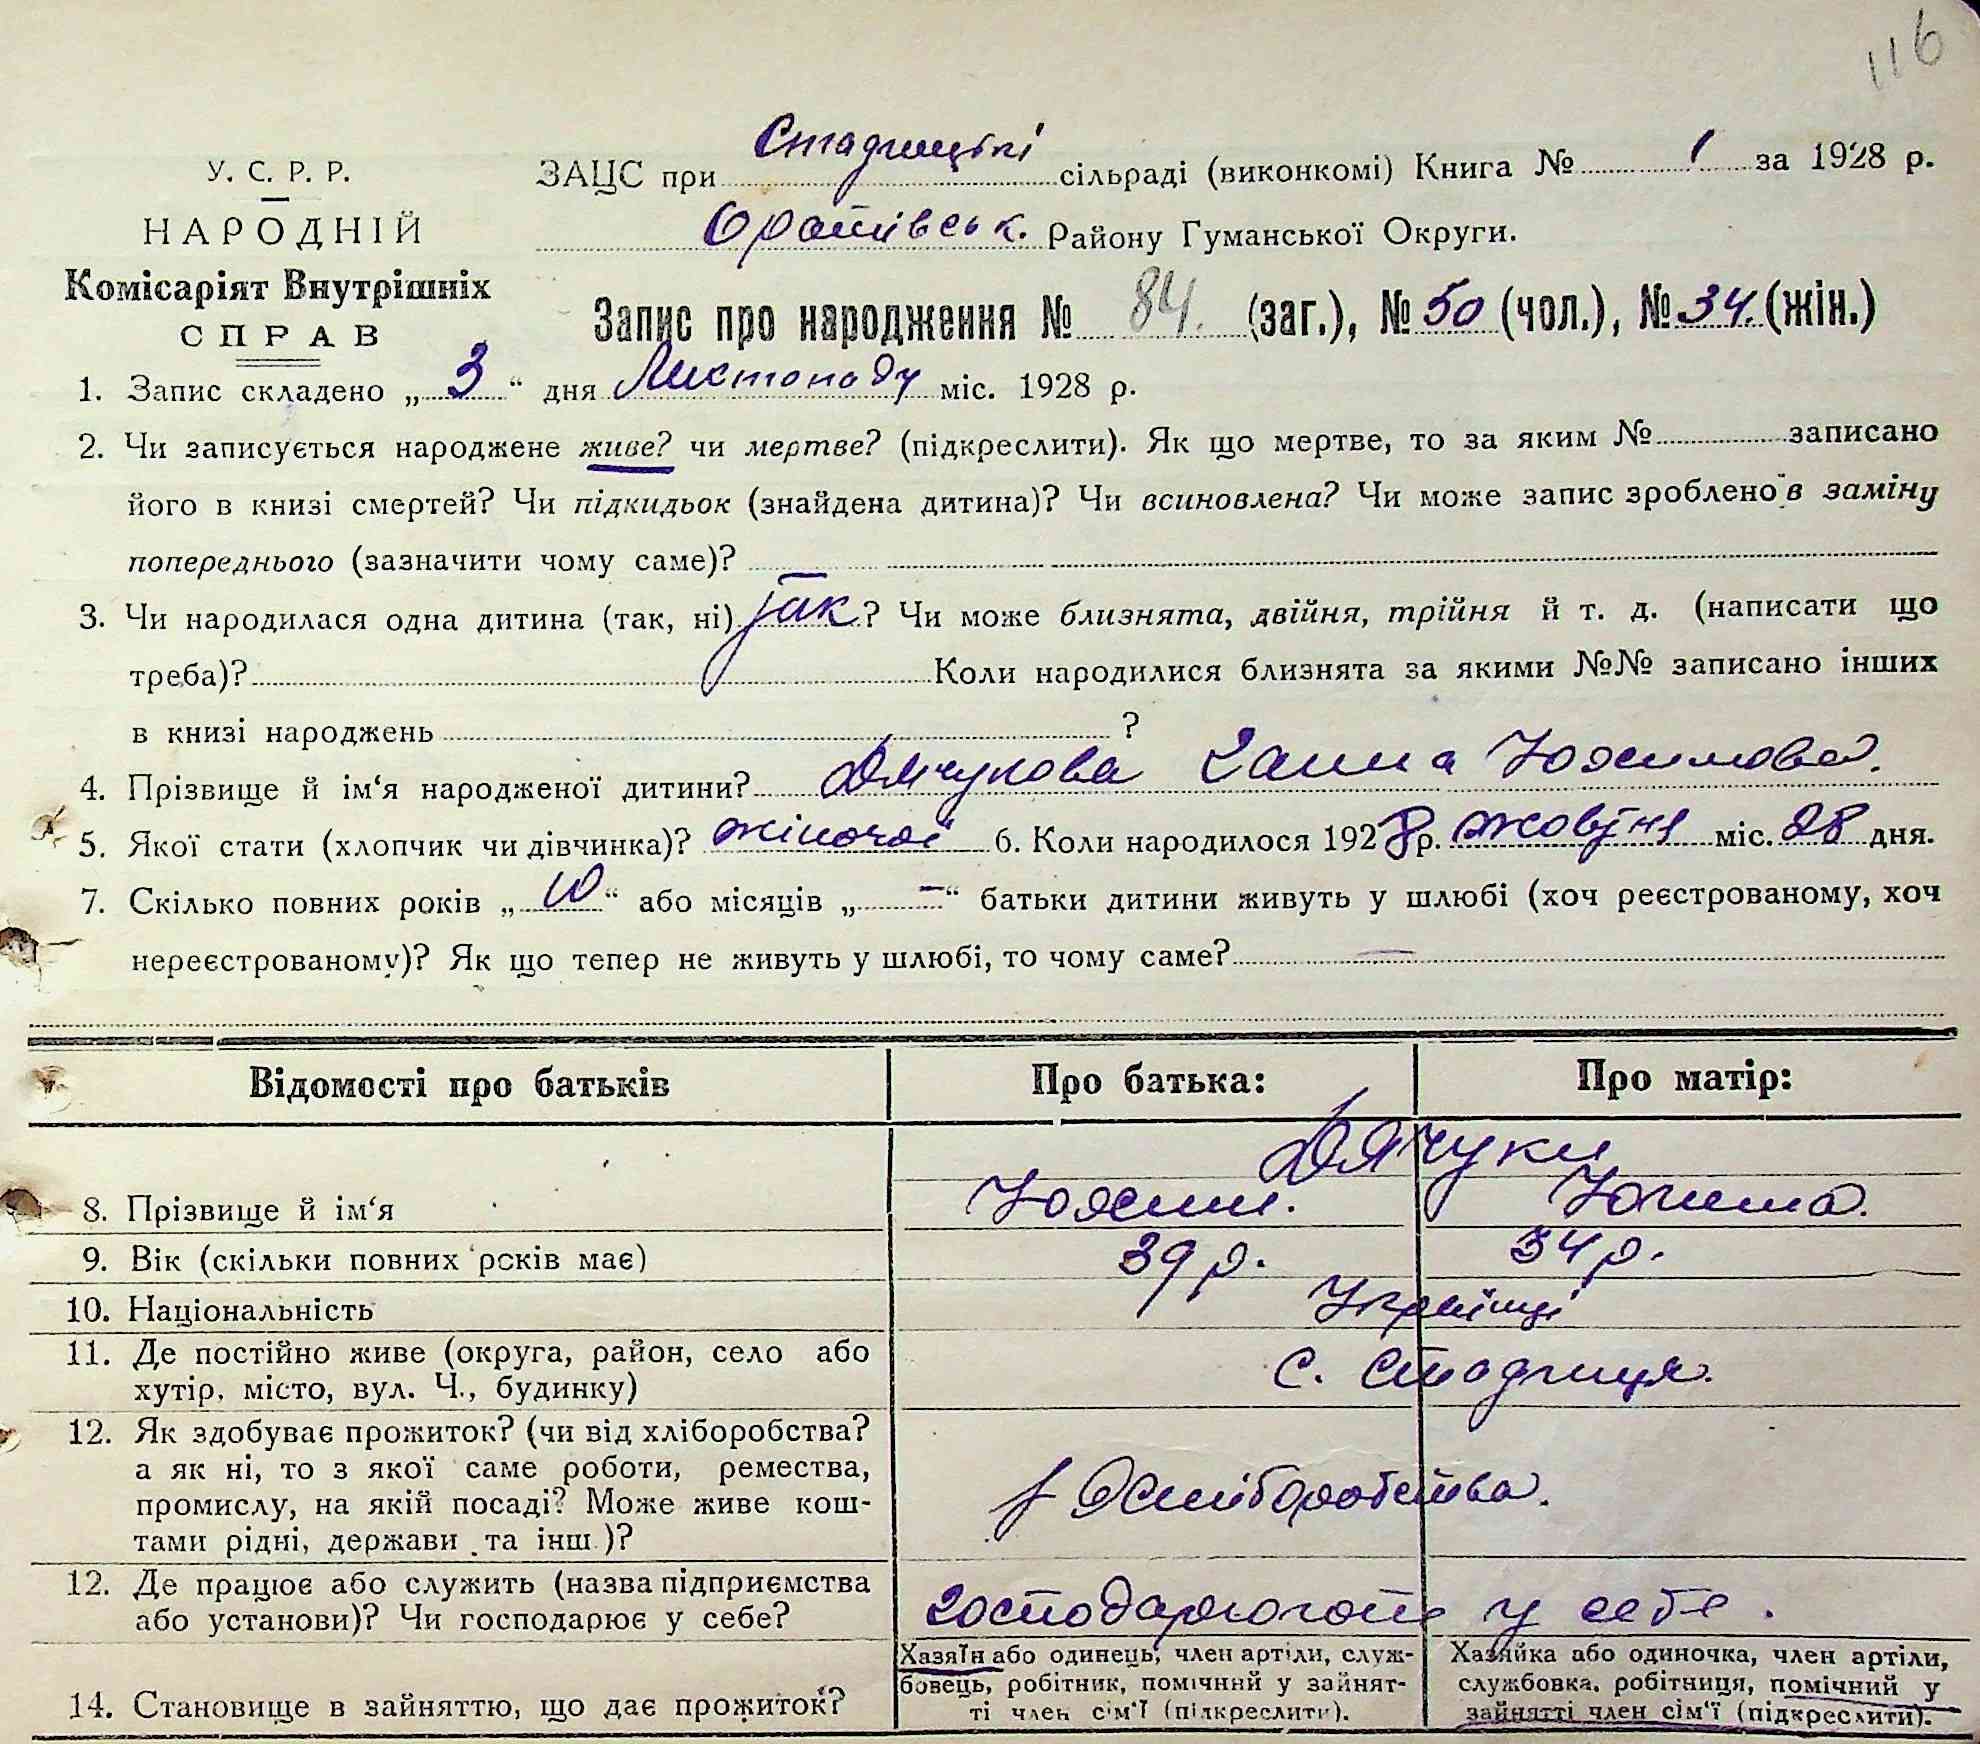 116
У. С. Р. Р.
НАРОДНІЙ
Комісаріят Внутрішніх
СПРАВ
ЗАЦС при Стадницькі сільраді (виконкомі) Книга № 1 за 1928 р.
Оратівськ. Району Гуманської Округи.
Запис про народження № 84. (заг.), № 50 (чол.), № 34. (жін.)
1. Запис складено „ 3 “ дня Листопаду міс. 1928 р.
2. Чи записується народжене живе? чи мертве? (підкреслити). Як що мертве, то за яким № записано
його в книзі смертей? Чи підкидьок (знайдена дитина)? Чи всиновлена? Чи може запис зроблено в заміну
попереднього (зазначити чому саме)?
3. Чи народилася одна дитина (так, ні) так ? Чи може близнята, двійня, трійня й т. д. (написати що
треба)? Коли народилися близнята за якими №№ записано інших
в книзі народжень ?
4. Прізвище й ім‘я народженої дитини? Дячукова Ганна Юхимова.
5. Якої стати (хлопчик чи дівчинка)? жіночої 6. Коли народилося 1928 р. жовтня міс. 28 дня.
7. Скілько повних років „ 10 “ або місяців „ — “ батьки дитини живуть у шлюбі (хоч реєстрованому, хоч
нереєстрованому)? Як що тепер не живуть у шлюбі, то чому саме? —
Відомості про батьків Про батька: Про матір:
Дячуки
8. Прізвище й ім‘я Юхим.
9. Вік (скільки повних років має) 39 р. 34 р.
10. Національність Українці
11. Де постійно живе (округа, район, село або
хутір, місто, вул. Ч., будинку) С. Стадниця.
12. Як здобуває прожиток? (чи від хліборобства?
а як ні, то з якої саме роботи, ремества,
промислу, на якій посаді? Може живе кош-
тами рідні, держави та інш.)? Хліборобства.
12. Де працює або служить (назва підприємства
або установи)? Чи господарює у себе? господарюють у себе.
14. Становище в зайняттю, що дає прожиток?
Хазяїн або одинець, член артіли, служ-
бовець, робітник, помічний у зайнят-
ті член сім‘ї (підкреслити).
Хазяйка або одиночка, член артіли,
службовка, робітниця, помічний у
зайнятті член сім‘ї (підкреслити).